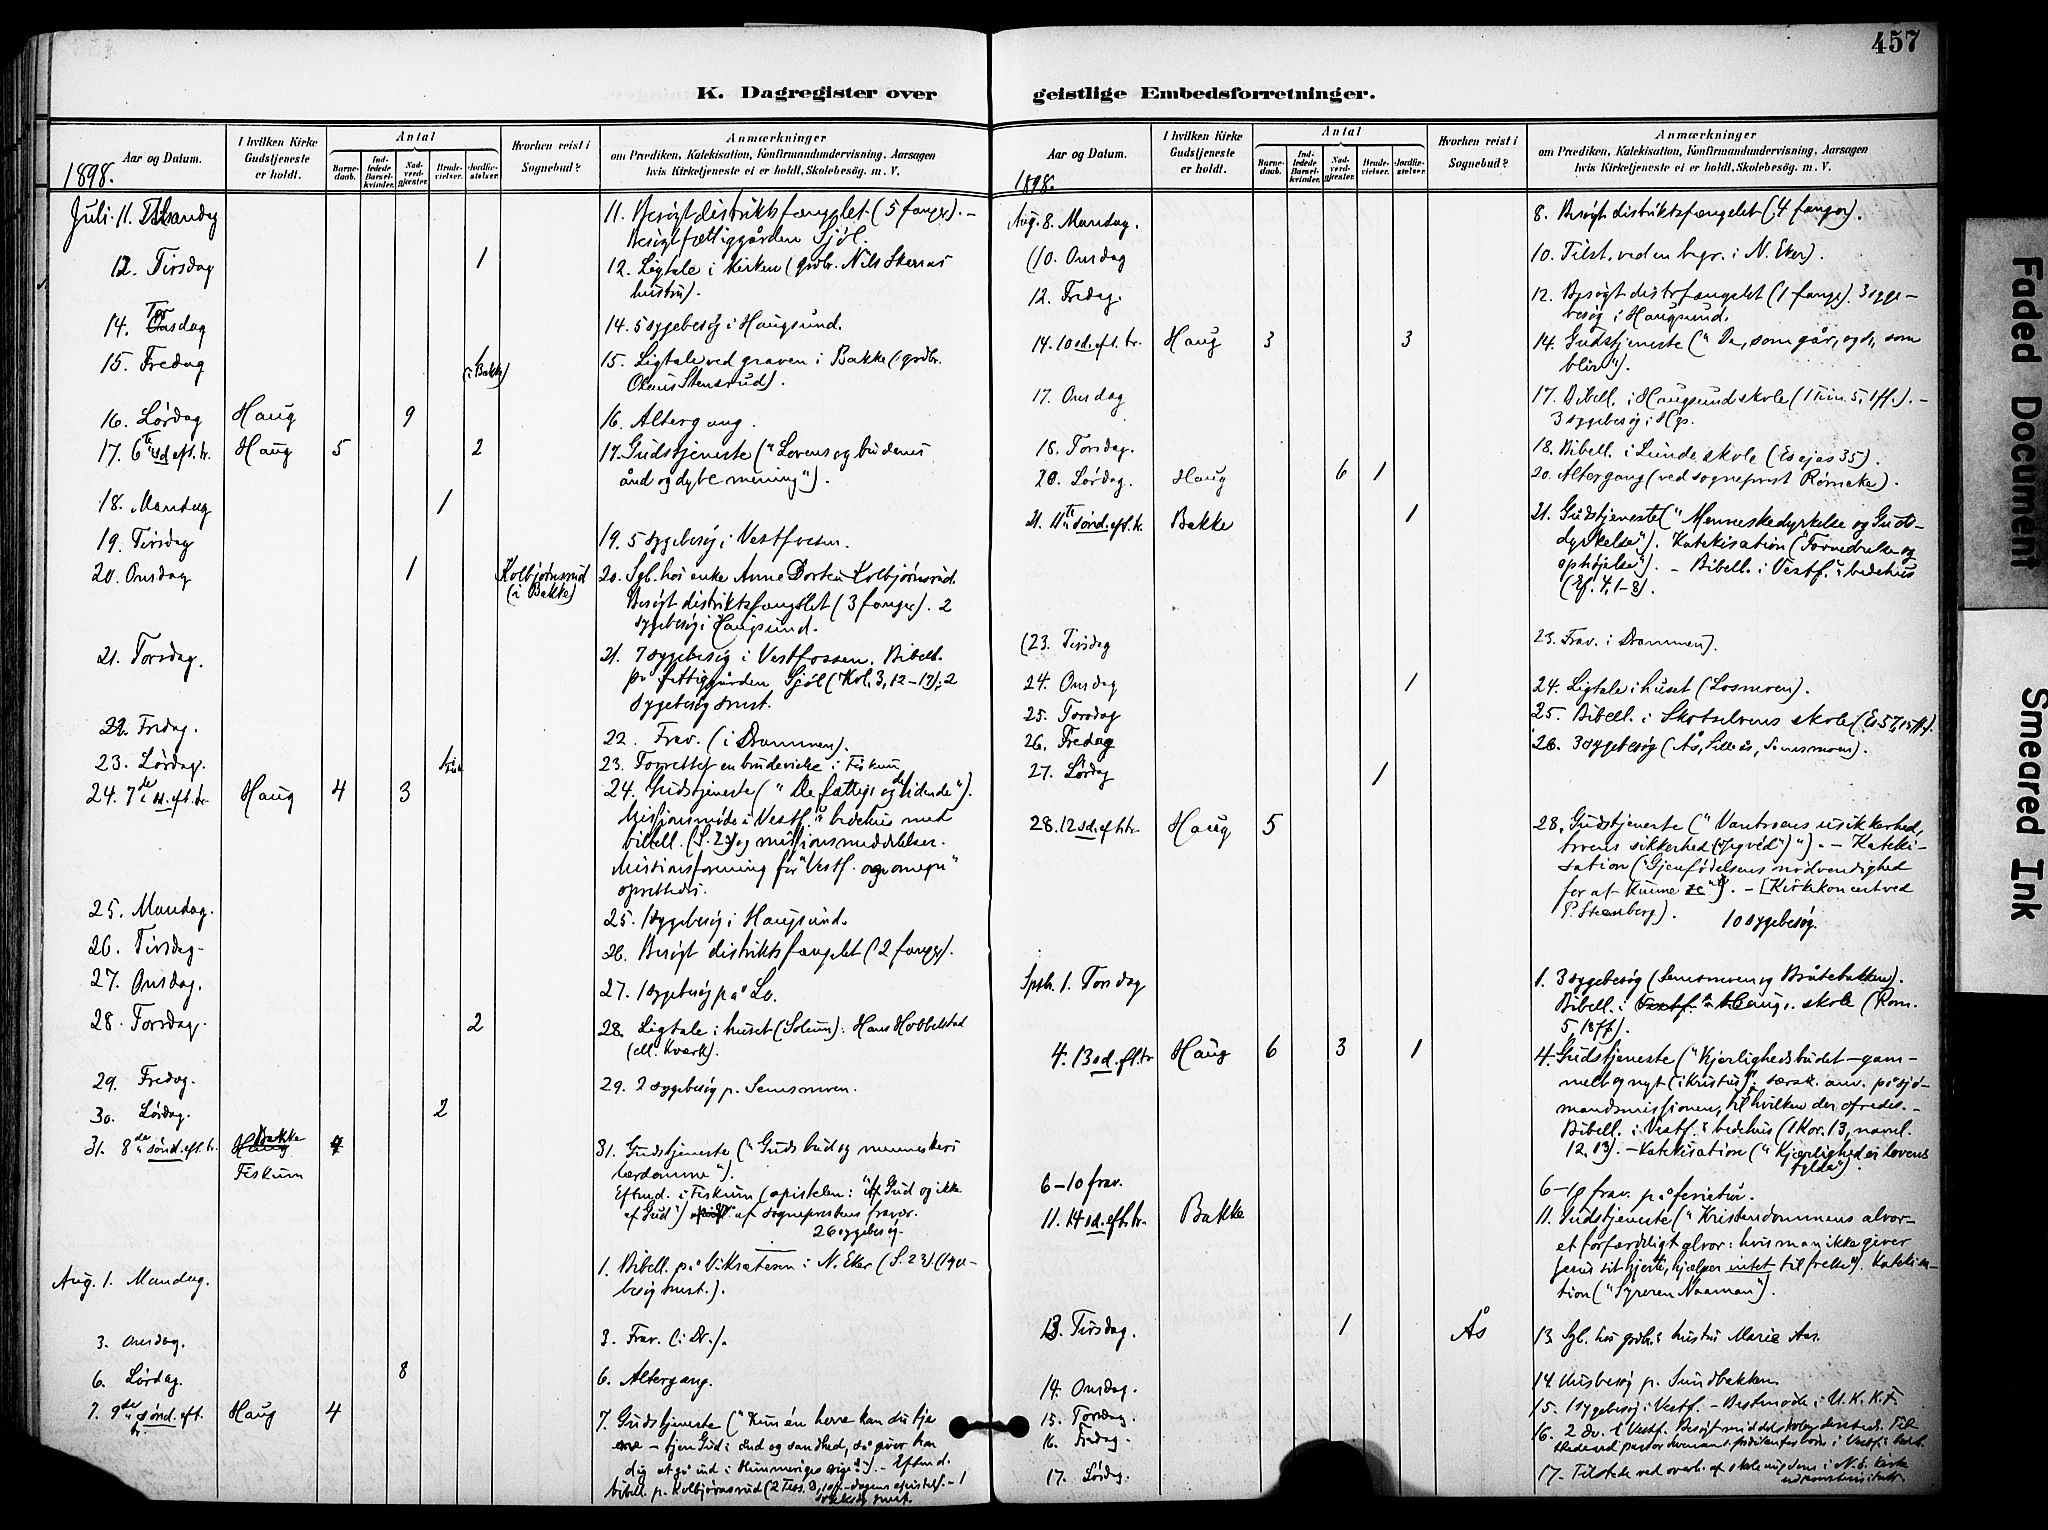 457
K. Dagregister over geistlige Embedsforretninger.
Aar og Datum.
I hvilken Kirke Gudstjeneste er holdt.
Antal
Barnedaab.
Indledede Barselkvinder.
Nadverdgjester.
Brudevielser.
Jordfæstelser.
Hvorhen reist i Sognebud?
Anmærkninger
om Prædiken, Katekisation, Konfirmandundervisning, Aarsagen
hvis Kirketjeneste ei er holdt, Skolebesøg. m. V.
1898.
Juli. 11. Mandag
11. Besøgt distriktsfængslet (5 fanger). –
Besøgt fattiggården Sjøl.
12. Tirsdag 1
12. Ligtale i kirken (grdbr. Nils
hustru).
14. Torsdag
14. 5 sygebesøg i Haugsund.
15. Fredag 1 (i Bakke)
15. Ligtale ved graven i Bakke (grdbr.
Olaus Stensrud).
16. Lørdag Haug 9
16. Altergang.
17. 6te sd. eft. tr. Haug 5 2
17. Gudstjeneste ("Lovens og budenes
ånd og dybe mening").
18. Mandag 1
19. Tirsdag
19. 5 sygebesøg i Vestfossen.
20. Onsdag 1 Kolbjørnsrud (i Bakke)
20. Sgb. hos enke Anne Dortea Kolbjørnsrud.
Besøgt distriktsfængslet (3 fanger). 2
sygebesøg i Haugsund.
21. Torsdag.
21. 7 sygebesøg i Vestfossen. Bibell.
på fattiggården Sjøl (Kol. 3, 12–17); 2
sygebesøg smst.
22. Fredag.
22. Frav. (i Drammen).
23. Lørdag. 1 i Fisk
23. Forrettet en brudevielse i Fiskum
24. 7de sd. eft. tr. Haug 4 3
24. Gudstjeneste ("De fattige og de lidende").
Missionsmøde i Vestf. bedehus med
bibell. (S. 23) og missionsmeddelelser.
Missionsforening for "Vestf. og omegn"
oprettedes.
25. Mandag.
25. 1 sygebesøg i Haugsund.
26. Tirsdag
26. Besøgt distriktsfængslet (2 fanger).
27. Onsdag.
27. 1 sygebesøg på Lo.
28. Torsdag. 2
28. Ligtale i huset (Solum): Hans Hobbelstad
29. Fredag.
29. 2 sygebesøg p. Semsmoen.
30. Lørdag. 2
31. 8de sønd. eft. tr. Bakke
Fiskum
31. Gudstjeneste ("Guds bud og menneskers
lærdomme").
Eftmd. i Fiskum (epistelen: "Af Gud og ikke
af Gud") af sogneprestens fravær.
26 sygebesøg.
Aug. 1. Mandag.
1. Bibell. på Viksæteren i N. Eker (S. 23) (1 syge-
besøg smst.).
3. Onsdag.
3. Frav. (i Dr.).
6. Lørdag. 8
6. Altergang.
7. 9de sønd. eft. tr. Haug 4
7. Gudstjeneste ("Kun én herre kan du tje
ene – tjen Gud i ånd og sandhed, så giver han
dig at gå ind i Himmeriges rige!"). – Eftmd.
bibell. p. Kolbjørnsrud (2 Tess. 3, 10ff – dagens epistel). – 1
sygebesøg smst.
Aar og Datum.
I hvilken Kirke Gudstjeneste er holdt.
Antal
Barnedaab.
Indledede Barselkvinder.
Nadverdgjester.
Brudevielser.
Jordfæstelser.
Hvorhen reist i Sognebud?
Anmærkninger
om Prædiken, Katekisation, Konfirmandundervisning, Aarsagen
hvis Kirketjeneste ei er holdt, Skolebesøg. m. V.
1898.
Aug. 8. Mandag.
8. Besøgt distriktsfængslet (4 fanger).
(10. Onsdag
10. Tilst. ved en begr. i N. Eker).
12. Fredag.
12. Besøgt distrfængslet (1 fange). 3 syge–
besøg i Haugsund.
14. 10 sd. eft. tr. Haug 3 3
14. Gudstjeneste ("De, som går, og de, som
blir").
17. Onsdag
17. Bibell. i Haugsund skole (1 Tim. 5, 1ff.). –
3 sygebesøg i Hgs.
18. Torsdag.
18. Bibell. i Lunde skole (Esajas 35).
20. Lørdag. Haug 6 1
20. Altergang (ved sogneprest Rømcke).
21. 11te sønd. eft. tr. Bakke 1
21. Gudstjeneste ("Menneskedyrkelse og Guds-
dyrkelse"). Katekisation (Fornedrelse og
ophøielse"). – Bibell. i Vestf. bedehus
(Ef. 4, 1–3).
(23. Tirsdag
23. Frav. i Drammen).
24. Onsdag 1
24. Ligtale i huset (Losmoen).
25. Torsdag
25. Bibell. i Skotselvens skole (Es 57, 15ff).
26. Fredag
26. 3 sygebesøg (Ås, Lilleås, Semsmoen).
27. Lørdag 1
28. 12 sd. eft. tr. Haug 5
28. Gudstjeneste ("Vantroens usikkerhed,
troens sikkerhed (jeg véd")"). – Kateki-
sation ("Gjenfødelsens nødvendighed
for at kunne se"). – [Kirkekoncert ved
P. Steenberg).
10 sygebesøg.
Sptb. 1. Torsdag
1. 3 sygebesøg (Semsmoen og Bråtebakken).
Bibell. i Haugs. skole (Rom.
5, 18ff).
4. 13 sd. eft. tr. Haug 6 3 1
4. Gudstjeneste ("Kjærlighedsbudet – gam–
melt og nyt (i Kristus)"; særsk. anv. på sjø–
mandsmissionen, til hvilken der ofredes. –
Bibell. i Vestf. bedehus (1 Kor. 13, navnl.
12, 13). – Katekisation ("Kjærlighed er lovens
fylde").
6–10 frav.
6–10 frav. på ferietur.
11. 14 sd. eft. tr. Bakke
11. Gudstjeneste ("Kristendommens alvor –
et forfærdeligt alvor: hvis man ikke giver
Jesus sit hjerte, hjælper intet til frelse"). Katekisa–
tion ("Syreren Naaman").
13. Tirsdag. 1 Ås
13. Sgb. hos grdbr.s hustru Marie Aas.
14. Onsdag.
14. Husbesøg p. Sundbakken
15. Torsdag.
15. 1 sygebesøg i Vestf. – Bestmøde i U. K. K. F.
16. Fredag.
16. 2 do. i Vestf.
17. Lørdag.
17. Tilstede ved overh. af i N. E. kirke
Faded Document
Smeared Ink